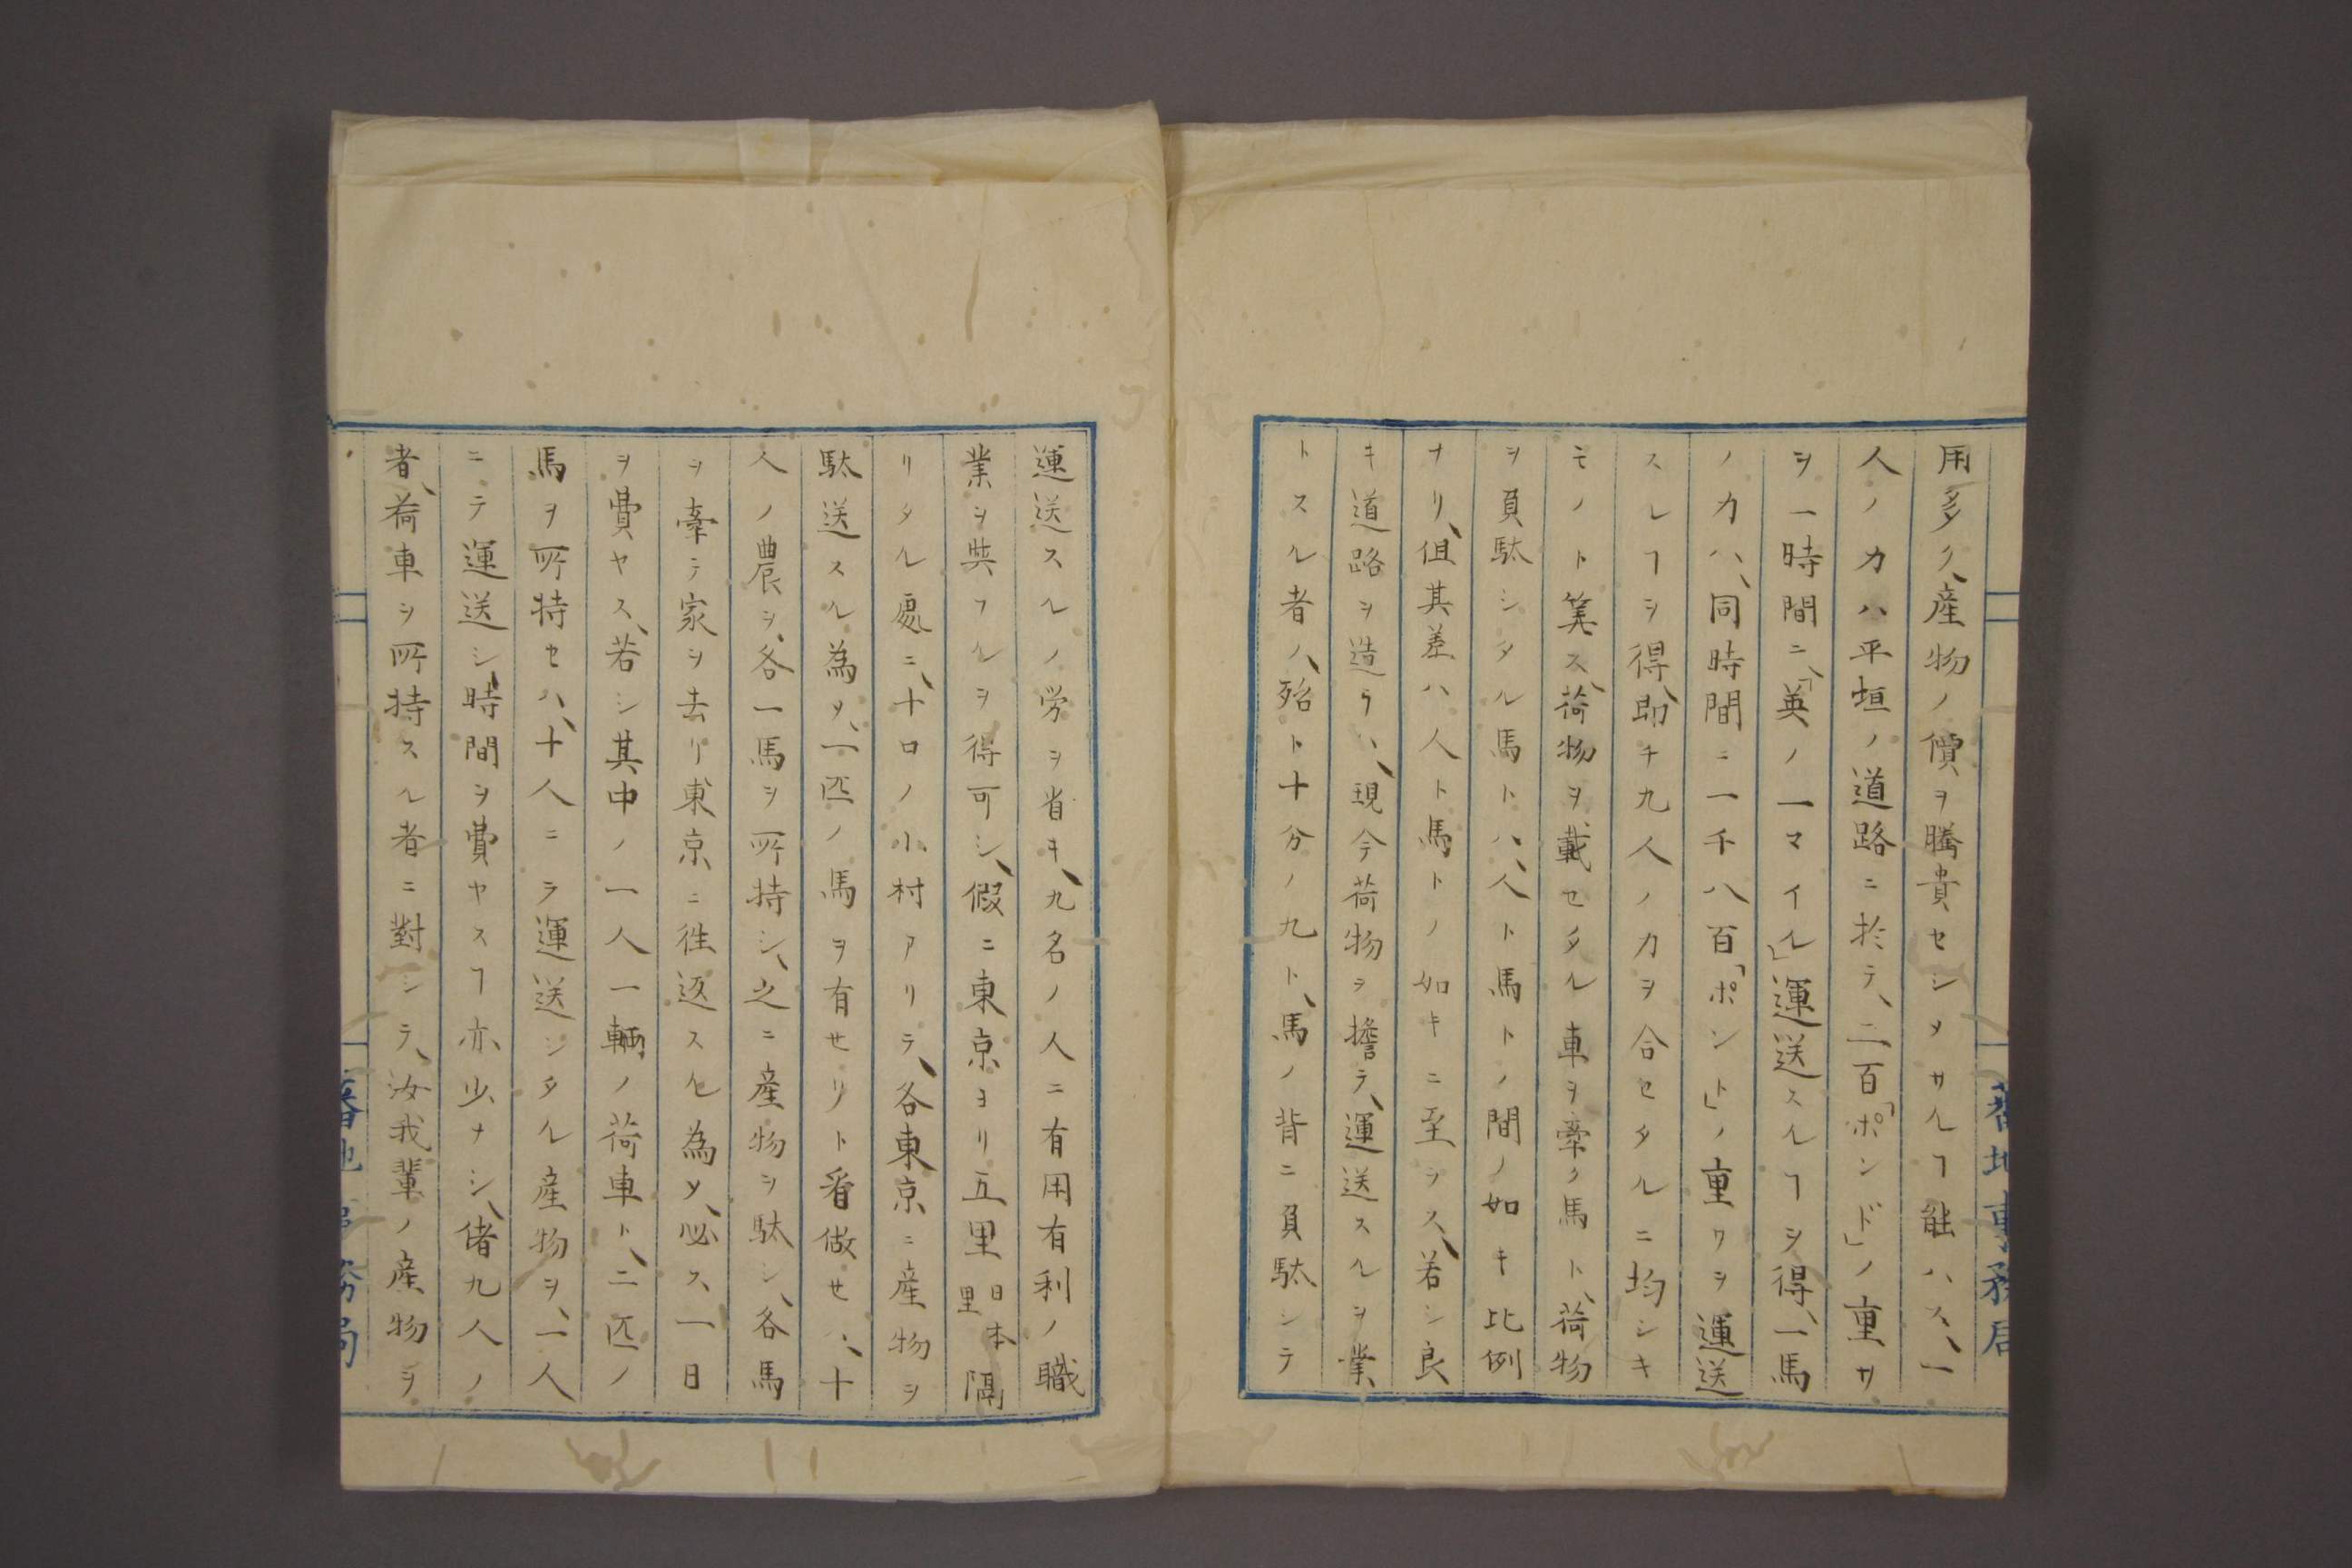 用多ク、産物ノ價ヲ騰貴セシメサルヿ能ハス、一
人ノ力ハ平垣ノ道路ニ於テ、二百「ポンド」ノ重サ
ヲ一時間ニ、「英ノ一マイル」運送スルヿヲ得、一馬
ノ力ハ、同時間ニ一千八百「ポント」ノ重ワヲ運送
スレヿヲ得、即チ九人ノ力ヲ合セタルニ均シキ
モノト筭ス、荷物ヲ載セタル車ヲ牽ク馬ト、荷物
ヲ負駄シタル馬トハ、人ト馬トノ間ノ如キ比例
ナリ、但其差ハ人ト馬トノ如キニ至ヲス、若シ良
キ道路ヲ造ラハ、現今荷物ヲ擔テ、運送スルヲ業
トスル者ノ、殆ト十分ノ九ト、馬ノ背ニ負駄シテ
運送スルノ労ヲ省キ、九名ノ人ニ有用有利ノ職
業ヲ與フルヲ得可シ、假ニ東京ヨリ五里日本里隔
リタル處ニ、十口ノ小村アリテ、各東京ニ産物ヲ
駄送スル為メ、一匹ノ馬ヲ有セリト看做セハ、十
人ノ農ヲ、各一馬ヲ所持シ、之ニ産物ヲ駄シ、各馬
ヲ牽テ家ヲ去リ東京ニ徃返スル為メ、必ス、一日
ヲ費ヤス、若シ其中ノ一人一輌ノ荷車ト、二匹ノ
馬ヲ所持セハ、十人ニテ運送シタル産物ヲ、一人
ニテ運送シ、時間ヲ費ヤスヿ亦少ナシ、偖九人ノ
者、荷車ヲ所持スル者ニ對シテ、汝我輩ノ産物ヲ
蕃地事務局